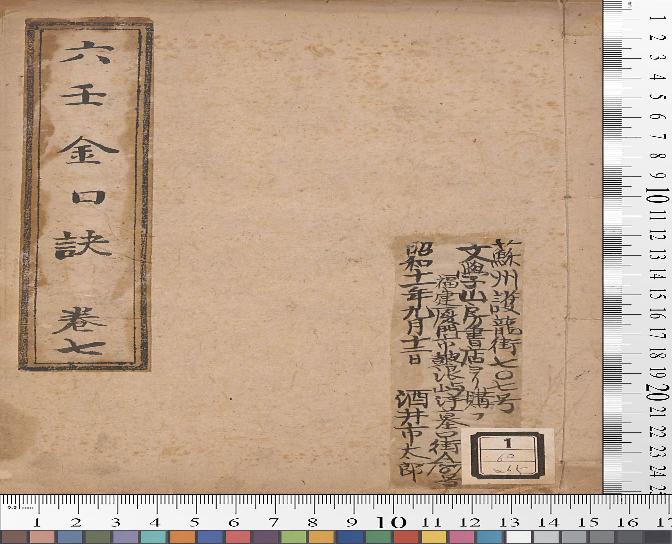 六壬金口訣 卷七
蘇州護龍街七〇七号
文學山房書店ヨリ購フ
福建厦門市鼓浪嶼
昭和十一年九月十二日 酒井市太郎
1
1 2 3 4 5 6 7 8 9 10 11 12 13 14 15 16 17 18 19 20 21 22 23 24
1 2 3 4 5 6 7 8 9 10 11 12 13 14 15 16